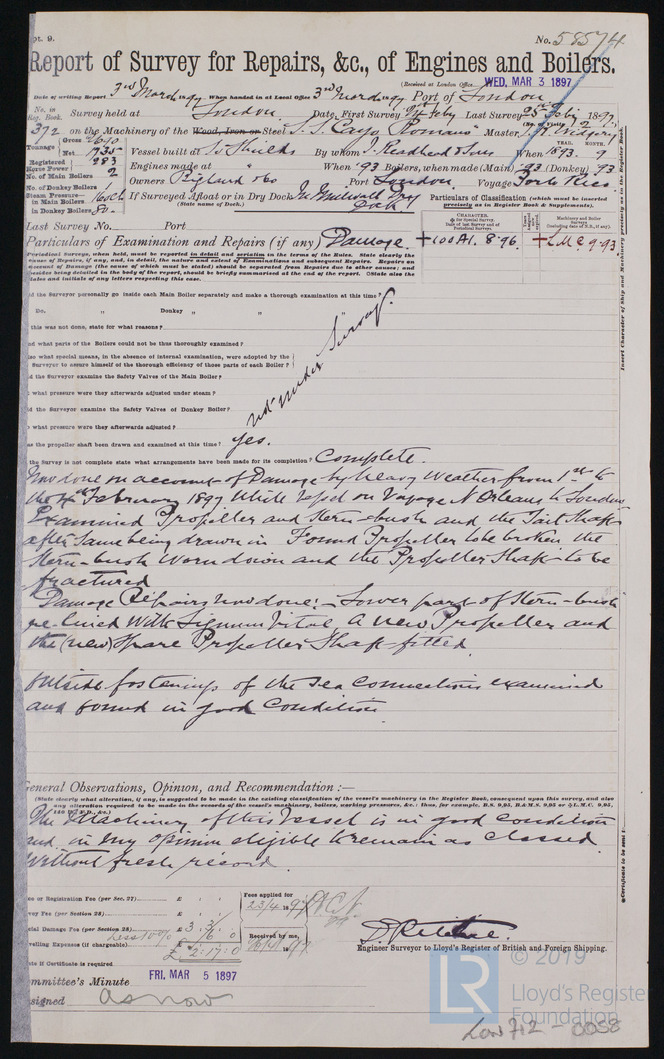 pt. 9.
No. 58574
Report of Survey for Repairs, &c., of Engines and Boilers.
(Received at London Office WED. MAR 3 1897
Date of writing Report 3rd March 1897 When handed in at Local Office 3rd March 1897 Port of London
No. in Reg. Book. Survey held at London Date, First Survey Feby Last Survey 25 Feby 1897
(No. of Visits 2)
372 on the Machinery of the Wood, Iron or Steel S.S. Cayo Romano Master
Tonnage Gross 2690
Net 1735 Vessel built at So Shields By whom J. Readhead & Sons When 1893. 9
YEAR. MONTH.
Registered Horse Power 283 Engines made at " " When '93 Boilers, when made (Main) 93 (Donkey) 93
No. of Main Boilers 2
Owners Port London. Voyage Porto Rico
No. of Donkey Boilers
Steam Pressure in Main Boilers 160
in Donkey Boilers 80 If Surveyed Afloat or in Dry Dock In Millwall Dry Dock
(State name of Dock.)
Particulars of Classification (which must be inserted precisely as in Register Book & Supplements).
Last Survey No. Port
CHARACTER.
Machinery and Boiler Surveys
Particulars of Examination and Repairs (if any) Damage.
+100A1. 8.96. +LMC 9.93
Periodical Surveys, when held, must be reported in detail and seriatim in the terms of the Rules. State clearly the
cause of Repairs, if any, and, in detail, the nature and extent of Examinations and subsequent Repairs. Repairs on
account of Damage (the cause of which must be stated) should be separated from Repairs due to other causes; and
besides being detailed in the body of the report, should be briefly summarised at the end of the report. State also the
dates and initials of any letters respecting this case.
d the Surveyor personally go inside each Main Boiler separately and make a thorough examination at this time?
Do. " Donkey " " "
this was not done, state for what reasons?
nd what parts of the Boilers could not be thoroughly examined?
so what special means, in the absence of internal examination, were adopted by the
Surveyor to assure himself of the thorough efficiency of those parts of each Boiler?
d the Surveyor examine the Safety Valves of the Main Boiler?
what pressure were they afterwards adjusted under steam?
d the Surveyor examine the Safety Valves of Donkey Boiler?
what pressure were they afterwards adjusted?
not under Survey.
as the propeller shaft been drawn and examined at this time? yes.
the Survey is not complete state what arrangements have been made for its completion? Complete.
Now done on account of Damage by heavy weather from 1st to
the February 1897 while on Voyage N Orleans to London
Examined Propeller and Stern-bush and the Tail Shaft
after same being drawn in Found Propeller to be broken the
Stern-bush worn down and the Propeller Shaft to be
fractured
Damage Repairs now done:- Lower part of Stern-bush
re-lined with Lignum Vitae, a new Propeller and
the (new) spare Propeller Shaft fitted.
Outside fastenings of the Sea connections examined
and found in good condition
General Observations, Opinion, and Recommendation:—
(State clearly what alteration, if any, is suggested to be made in the existing classification of the vessel's machinery in the Register Book, consequent upon this survey, and also
any alteration required to be made in the records of the vessel's machinery, boilers, working pressures, &c.: thus, for example, B.S. 9,95, B.&M.S. 9,95 or L.M.C. 9,95,
The Machinery of this Vessel is in good condition
and in my opinion eligible to remain as classed
without fresh record.
ce or Registration Fee (per Sec. 27) £
Fees applied for
23/4 1897
vey Fee (per Section 28) £
cial Damage Fee (per Section 28) £ 3.3.
less 10% 6.0
Received by me,
velling Expenses (if chargeable) £ 2.17.0
ate if Certificate is required
D. Ritchie.
Engineer Surveyor to Lloyd's Register of British and Foreign Shipping.
ommittee's Minute FRI. MAR 5 1897
signed as now
Insert Character of Ship and Machinery precisely as in the Register Book.
Certificate to be sent
LR
© 2019
Lloyd's Register
Foundation
Lon 712 - 0058